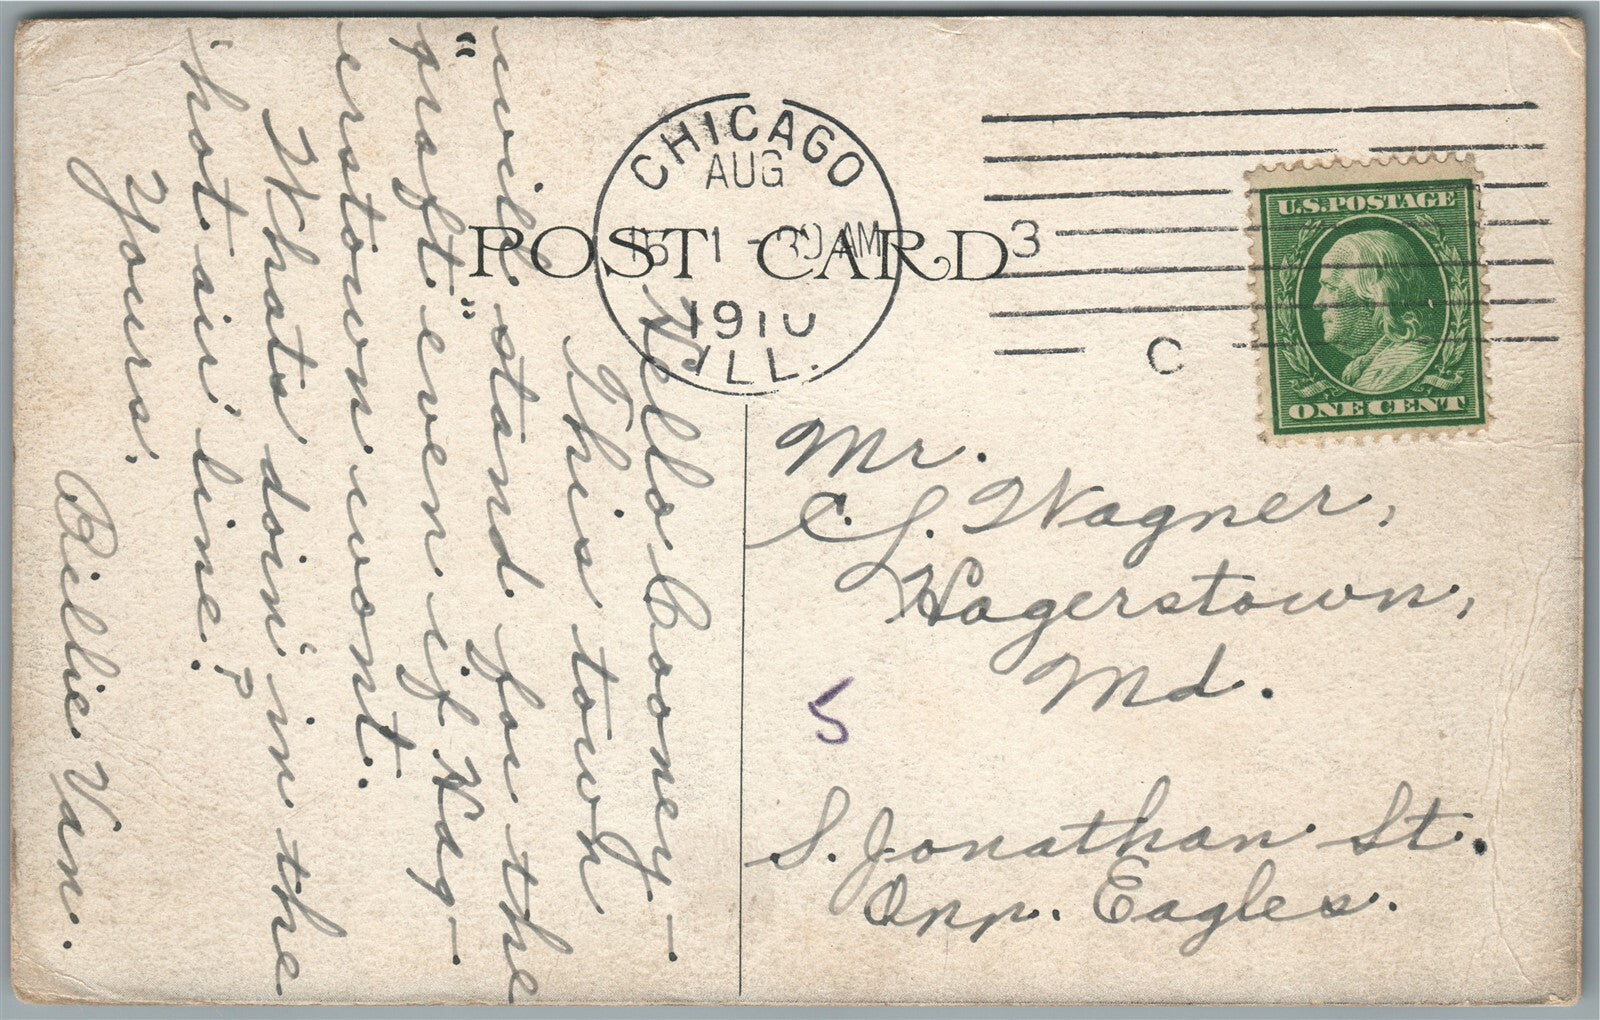 POST CARD
CHICAGO
AUG
1 - 30 AM
1910
ILL.
3
C
U.S. POSTAGE
ONE CENT
Mr.
C. L. Wagner,
Hagerstown,
Md.
S. Jonathan St.
Opp. Eagles.
5
Hello Cooney—
This town
will stand for the
"graft" even if Hag-
erstown wont.
Whats doin' in the
'hot air' line?
Yours.
Billie Van.